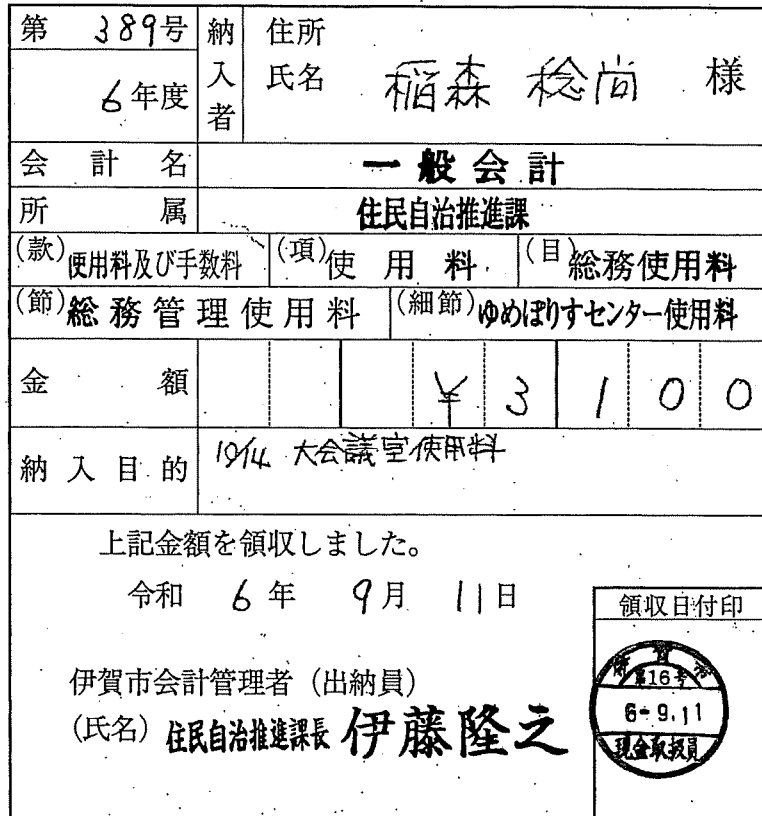 第 389号
6年度
納入者
住所
氏名 稲森 稔尚 様
会計名 一般会計
所属 住民自治推進課
(款)使用料及び手数料 (項)使用料 (目)総務使用料
(節)総務管理使用料 (細節)ゆめぽりすセンター使用料
金額 ¥3100
納入目的 10/14 大会議室使用料
上記金額を領収しました。
令和 6年 9月 11日
領収日付印
伊賀市会計管理者(出納員)
(氏名)住民自治推進課長 伊藤隆之
伊賀市
第16号
6-9.11
現金取扱員